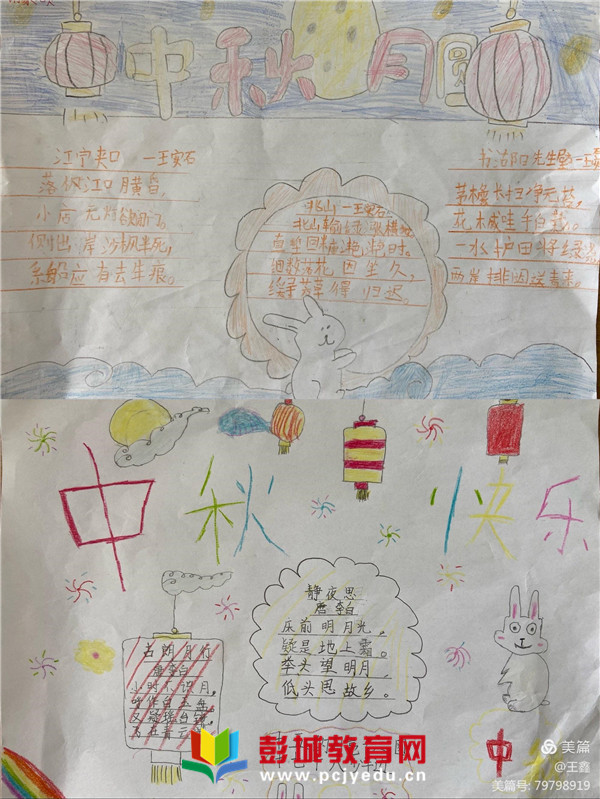 中秋月圆
江宁夹口 一王安石
落帆江口月黄昏,
小店无灯欲闭门。
侧出岸沙枫半死,
系船应有去年痕。
北山一王安石
北山输绿涨横
细数落花因坐久,
缓寻芳草得归迟。
书湖阴先生壁一王
茅檐长扫净无苔,
花木成
一水护田将绿
两岸排闼送青来。
中秋快乐
静夜思
唐 李白
床前明月光,
疑是地上霜。
举头望明月,
低头思故乡。
古朗月行
唐 李白
小时不识月,
呼作白玉
又疑
中
彭城教育网
www.pcjyedu.cn
美篇
@王鑫
美篇号: 79798919